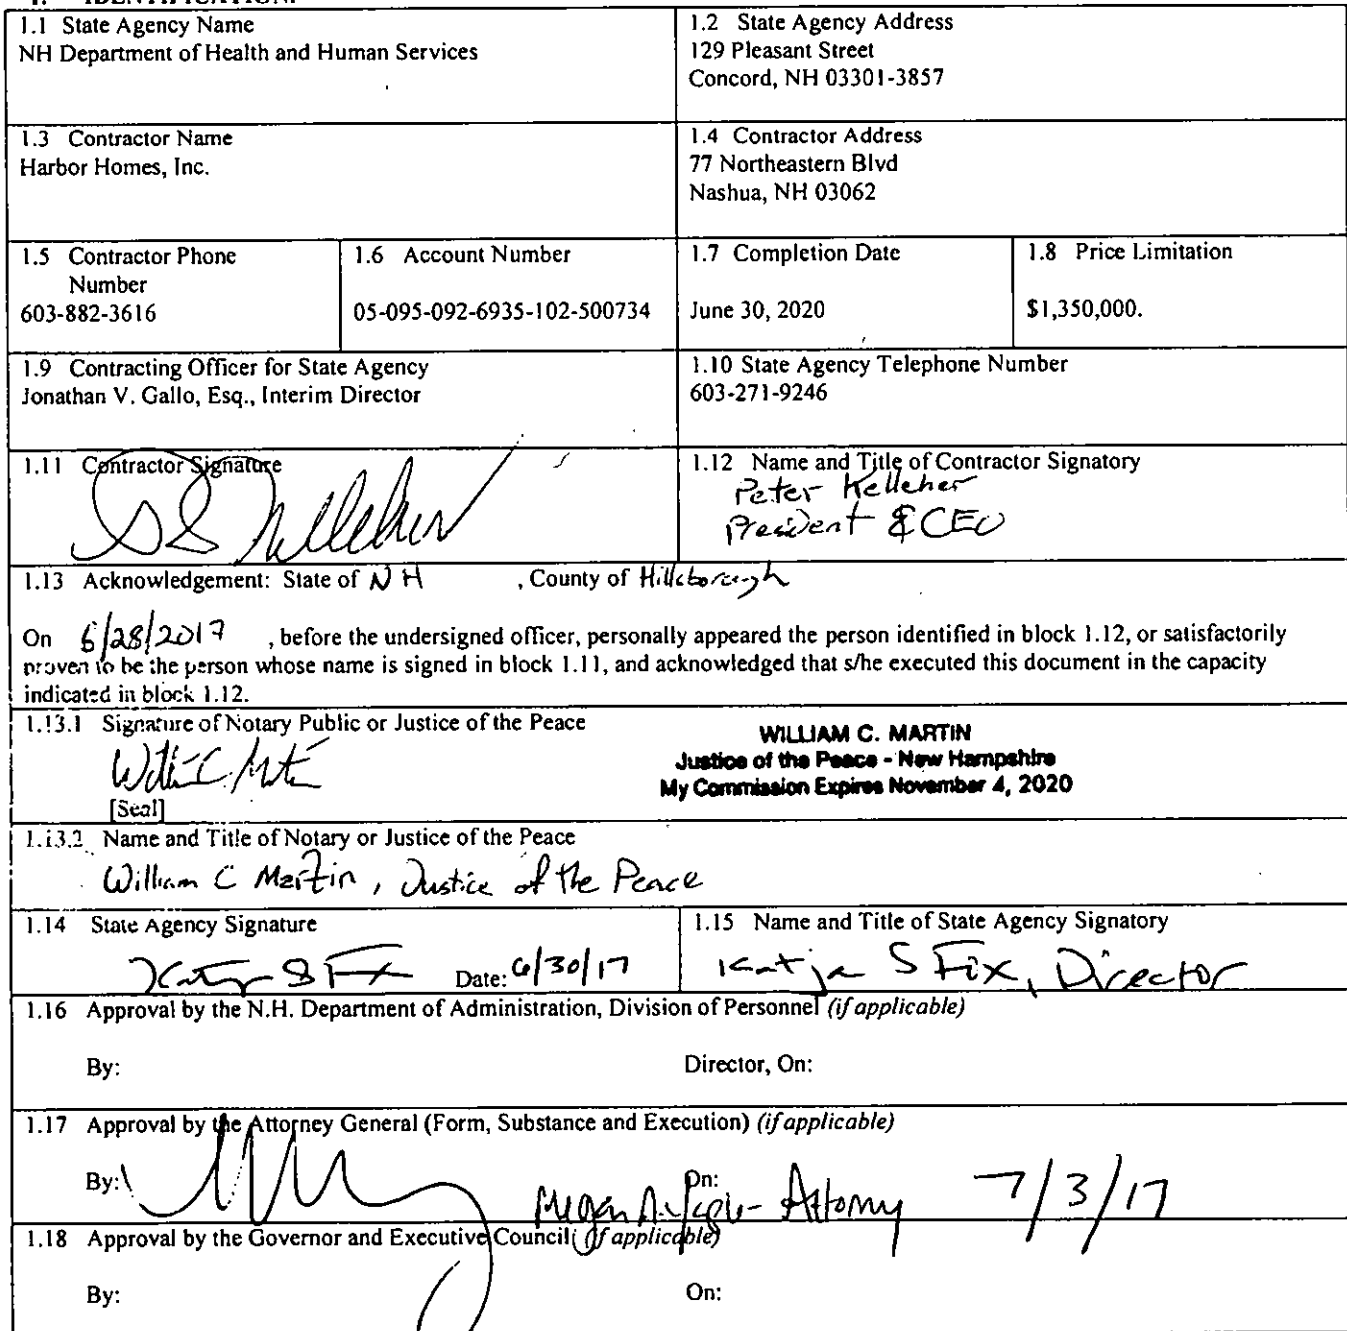 1. IDENTIFICATION.
1.1 State Agency Name
NH Department of Health and Human Services
1.2 State Agency Address
129 Pleasant Street
Concord, NH 03301-3857
1.3 Contractor Name
Harbor Homes, Inc.
1.4 Contractor Address
77 Northeastern Blvd
Nashua, NH 03062
1.5 Contractor Phone
Number
603-882-3616
1.6 Account Number
05-095-092-6935-102-500734
1.7 Completion Date
June 30, 2020
1.8 Price Limitation
$1,350,000.
1.9 Contracting Officer for State Agency
Jonathan V. Gallo, Esq., Interim Director
1.10 State Agency Telephone Number
603-271-9246
1.11 Contractor Signature
1.12 Name and Title of Contractor Signatory
Peter Kelleher
President & CEO
1.13 Acknowledgement: State of NH , County of Hillsborough
On 6/28/2017 , before the undersigned officer, personally appeared the person identified in block 1.12, or satisfactorily
proven to be the person whose name is signed in block 1.11, and acknowledged that s/he executed this document in the capacity
indicated in block 1.12.
1.13.1 Signature of Notary Public or Justice of the Peace
WILLIAM C. MARTIN
Justice of the Peace - New Hampshire
My Commission Expires November 4, 2020
[Seal]
1.13.2 Name and Title of Notary or Justice of the Peace
William C Martin, Justice of the Peace
1.14 State Agency Signature
Date: 6/30/17
1.15 Name and Title of State Agency Signatory
Katja S Fox, Director
1.16 Approval by the N.H. Department of Administration, Division of Personnel (if applicable)
By:
Director, On:
1.17 Approval by the Attorney General (Form, Substance and Execution) (if applicable)
By:
On:
Megan A. - Attorney 7/3/17
1.18 Approval by the Governor and Executive Council (if applicable)
By:
On: